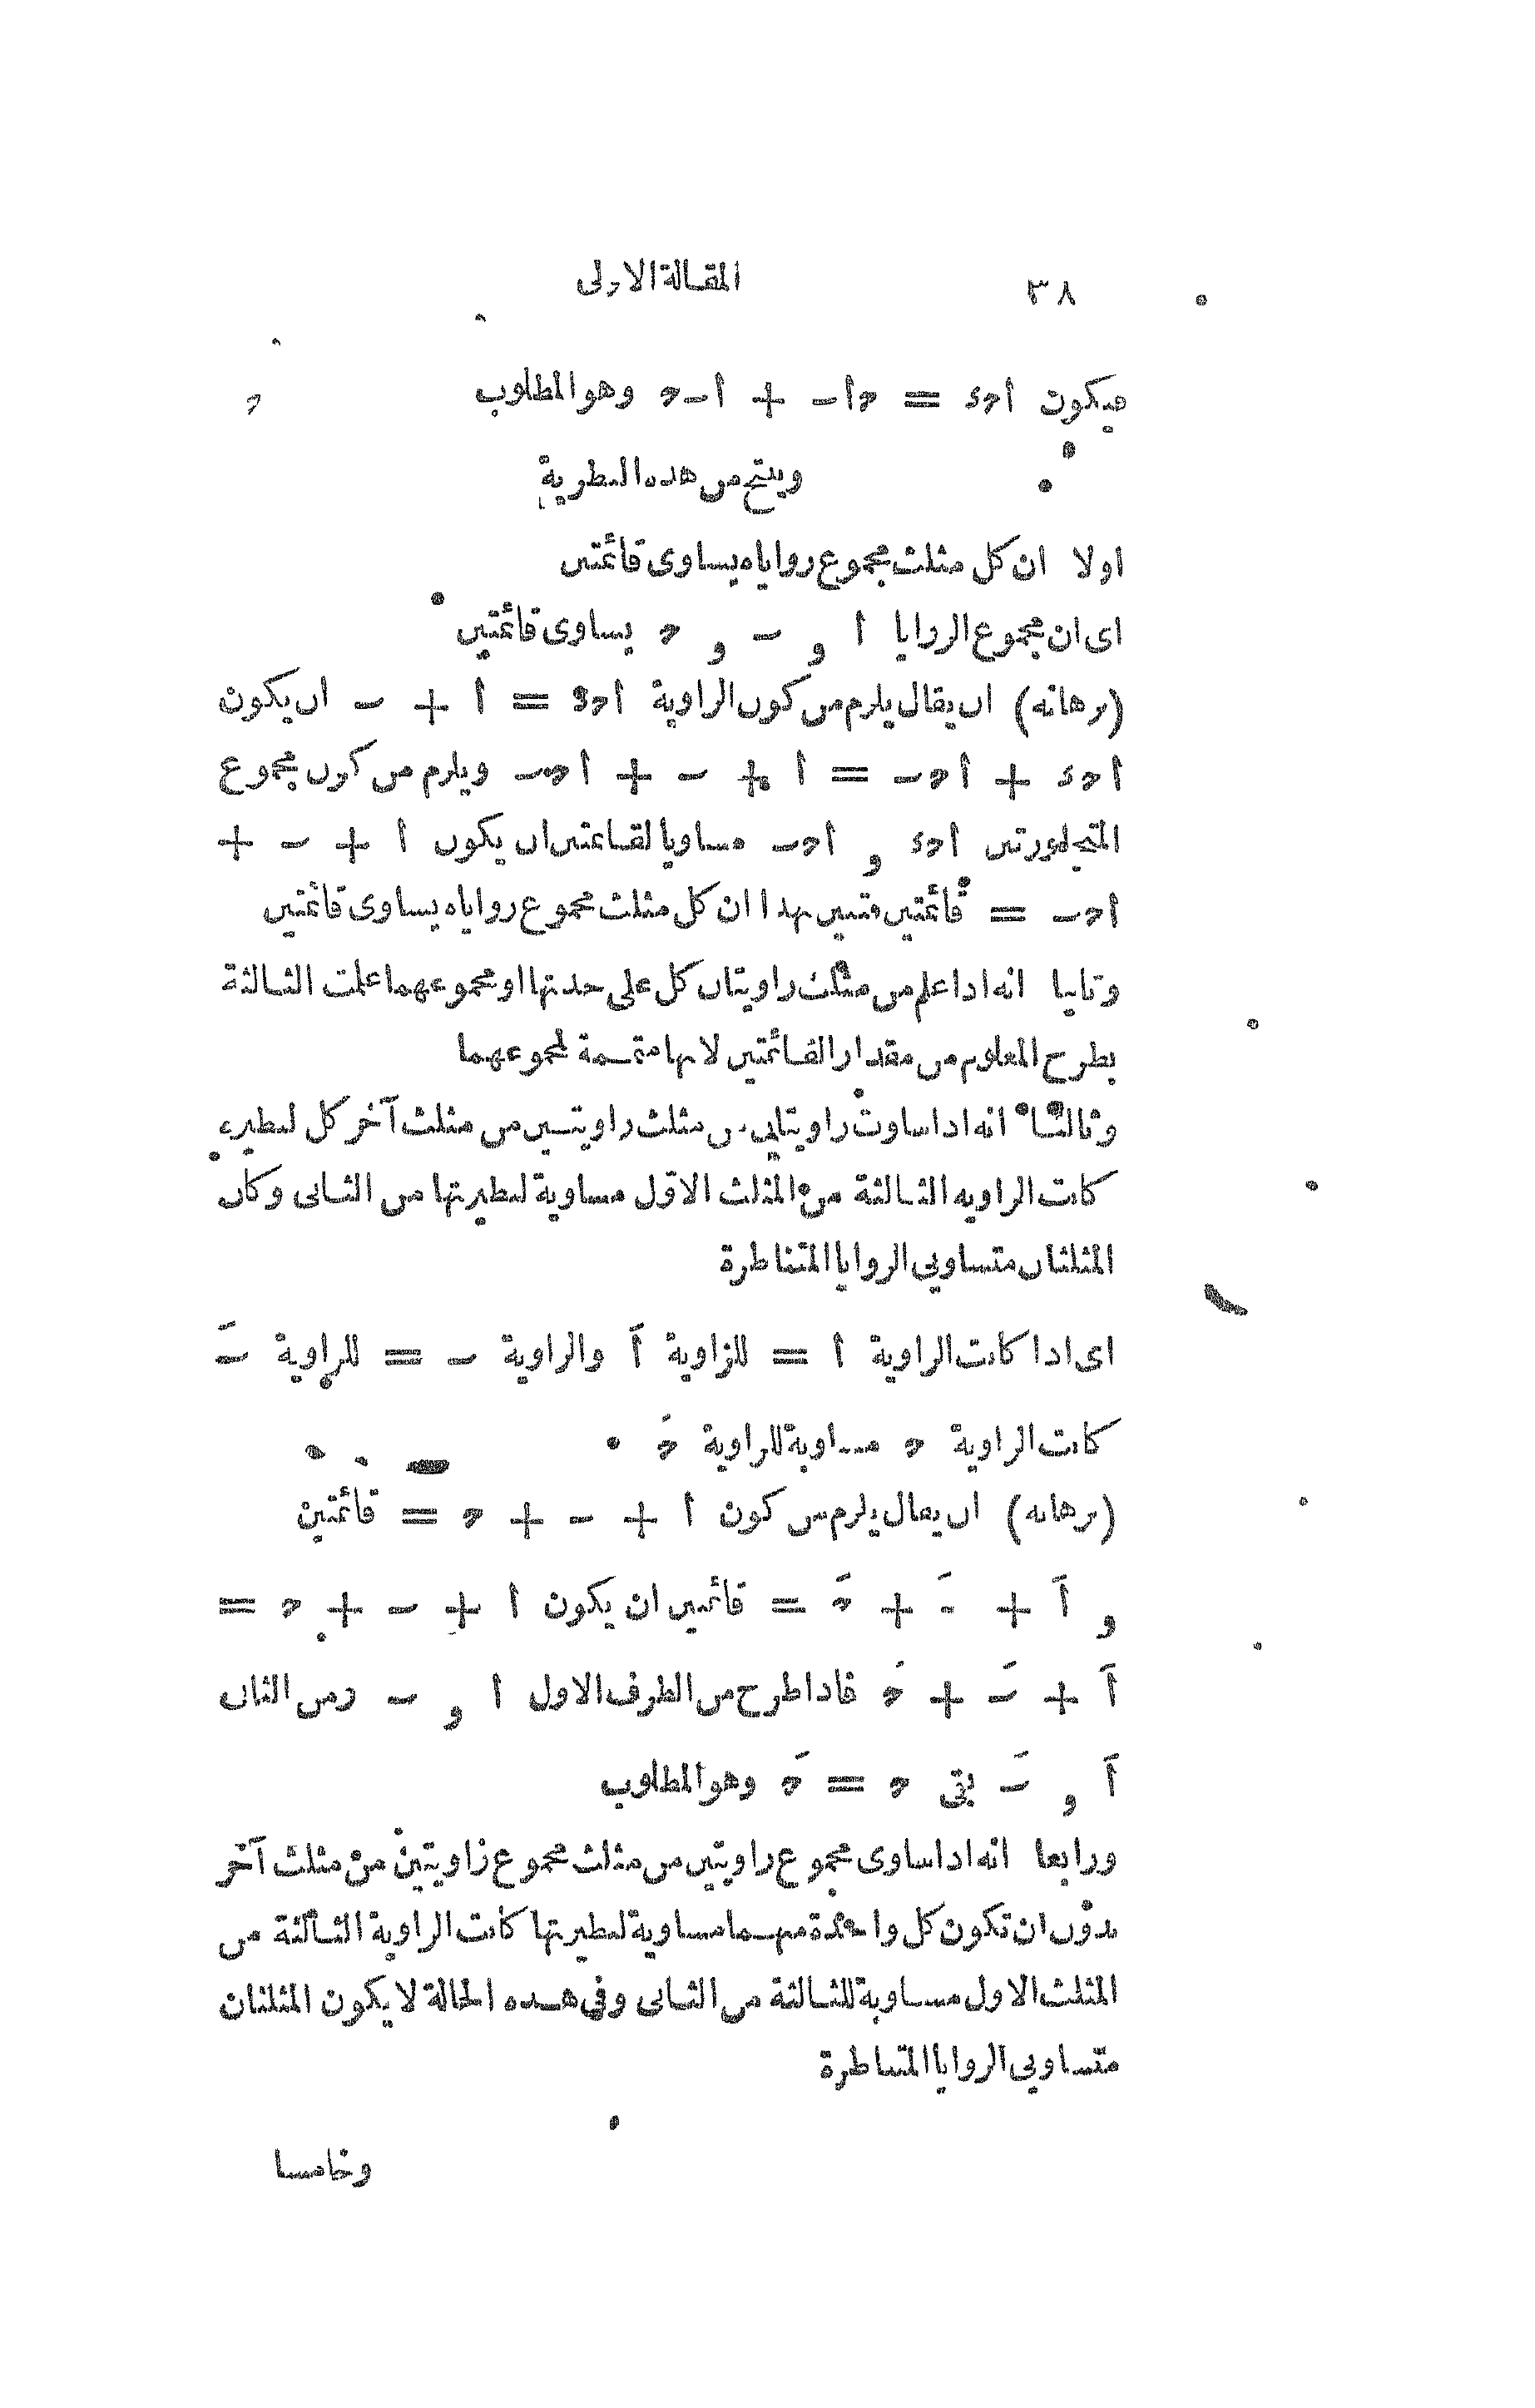 ٣٨
المقالة الاولى
فيكون أحد = حأب + أبح وهو المطلوب
وينتج من هذه النظرية
اولا ان كل مثلث مجموع زواياه يساوى قائمتين
اى ان مجموع الزوايا أ و ب و ح يساوى قائمتين
(برهانه) ان يقال يلزم من كون الزاوية أحد = أ + ب ان يكون
أحد + أحب = أ + ب + أحب ويلزم من كون مجموع
المتجاورتين أحد و أحب مساويا لقائمتين ان يكون أ + ب +
أحب = قائمتين فتبين بهذا ان كل مثلث مجموع زواياه يساوى قائمتين
وثانيا انه اذا علم من مثلث زاويتان كل على حدتها او مجموعهما علمت الثالثة
بطرح المعلوم من مقدار القائمتين لانها متممة لمجموعهما
وثالثا انه اذا ساوت زاويتان من مثلث زاويتين من مثلث آخر كل لنظيره
كانت الزاويه الثالثة من المثلث الاول مساوية لنظيرتها من الثانى وكان
المثلثان متساويى الزوايا المتناظرة
اى اذا كانت الزاوية أ = للزاوية أَ والزاوية ب = للزاوية بَ
كانت الزاوية ح مساوية للزاوية حَ
(برهانه) ان يقال يلزم من كون أ + ب + ح = قائمتين
و أَ + بَ + حَ = قائمتين ان يكون أ + ب + ح =
أَ + بَ + حَ فاذا طرح من الطرف الاول أ و ب ومن الثانى
أَ و بَ بقى ح = حَ وهو المطلوب
ورابعا انه اذا ساوى مجموع زاويتين من مثلث مجموع زاويتين من مثلث آخر
بدون ان تكون كل واحدة منهما مساوية لنظيرتها كانت الزاوية الثالثة من
المثلث الاول مساوية للثالثة من الثانى وفى هذه الحالة لا يكون المثلثان
متساويى الزوايا المتناظرة
وخامسا